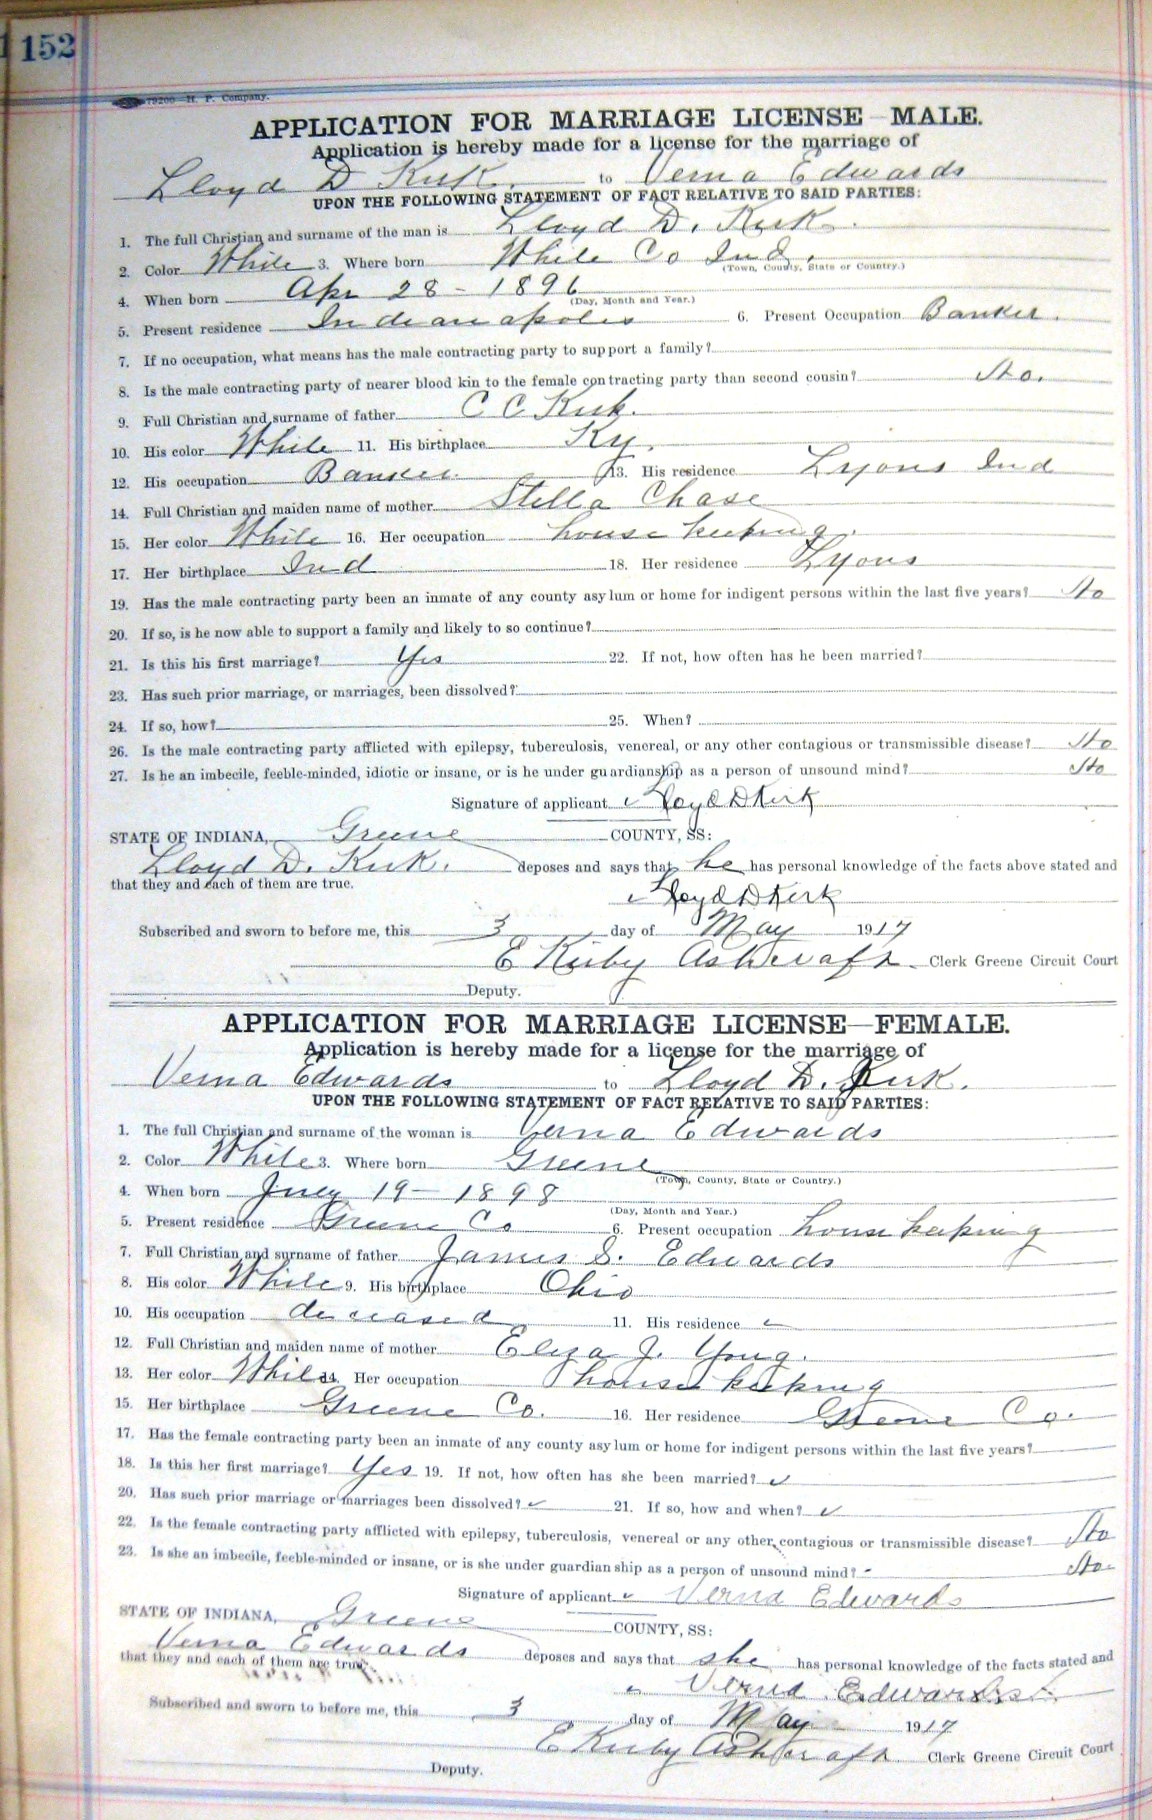 152
79200—H. P. Company.
APPLICATION FOR MARRIAGE LICENSE—MALE.
Application is hereby made for a license for the marriage of
Lloyd D Kirk. to Verna Edwards
UPON THE FOLLOWING STATEMENT OF FACT RELATIVE TO SAID PARTIES:
1. The full Christian and surname of the man is Lloyd D. Kirk.
2. Color White 3. Where born White Co Ind.
(Town, County, State or Country.)
4. When born Apr 28 - 1896
(Day, Month and Year.)
5. Present residence Indianapolis 6. Present Occupation Banker.
7. If no occupation, what means has the male contracting party to support a family?
8. Is the male contracting party of nearer blood kin to the female contracting party than second cousin? No.
9. Full Christian and surname of father C C Kirk.
10. His color White 11. His birthplace Ky.
12. His occupation Banker 13. His residence Lyons Ind
14. Full Christian and maiden name of mother Stella Chase
15. Her color White 16. Her occupation house keeping.
17. Her birthplace Ind 18. Her residence Lyons
19. Has the male contracting party been an inmate of any county asylum or home for indigent persons within the last five years? No
20. If so, is he now able to support a family and likely to so continue?
21. Is this his first marriage? Yes 22. If not, how often has he been married?
23. Has such prior marriage, or marriages, been dissolved?
24. If so, how? 25. When?
26. Is the male contracting party afflicted with epilepsy, tuberculosis, venereal, or any other contagious or transmissible disease? No
27. Is he an imbecile, feeble-minded, idiotic or insane, or is he under guardianship as a person of unsound mind? No
Signature of applicant Lloyd D Kirk
STATE OF INDIANA, Greene COUNTY, SS:
Lloyd D. Kirk. deposes and says that he has personal knowledge of the facts above stated and
that they and each of them are true.
Lloyd D Kirk
Subscribed and sworn to before me, this 3 day of May 1917
E Kirby Ashcraft Clerk Greene Circuit Court
Deputy.
APPLICATION FOR MARRIAGE LICENSE—FEMALE.
Application is hereby made for a license for the marriage of
Verna Edwards to Lloyd D. Kirk.
UPON THE FOLLOWING STATEMENT OF FACT RELATIVE TO SAID PARTIES:
1. The full Christian and surname of the woman is Verna Edwards
2. Color White 3. Where born Greene
(Town, County, State or Country.)
4. When born July 19 - 1898
(Day, Month and Year.)
5. Present residence Greene Co 6. Present occupation house keeping
7. Full Christian and surname of father James S. Edwards
8. His color White 9. His birthplace Ohio
10. His occupation deceased 11. His residence
12. Full Christian and maiden name of mother Eliza J. Young.
13. Her color White 14. Her occupation house keeping
15. Her birthplace Greene Co. 16. Her residence Greene Co.
17. Has the female contracting party been an inmate of any county asylum or home for indigent persons within the last five years?
18. Is this her first marriage? Yes 19. If not, how often has she been married? ✓
20. Has such prior marriage or marriages been dissolved? ✓ 21. If so, how and when? ✓
22. Is the female contracting party afflicted with epilepsy, tuberculosis, venereal or any other contagious or transmissible disease? No
23. Is she an imbecile, feeble-minded or insane, or is she under guardianship as a person of unsound mind? No
Signature of applicant Verna Edwards
STATE OF INDIANA, Greene COUNTY, SS:
Verna Edwards deposes and says that she has personal knowledge of the facts stated and
that they and each of them are true.
Verna Edwards
Subscribed and sworn to before me, this 3 day of May 1917
E Kirby Ashcraft Clerk Greene Circuit Court
Deputy.